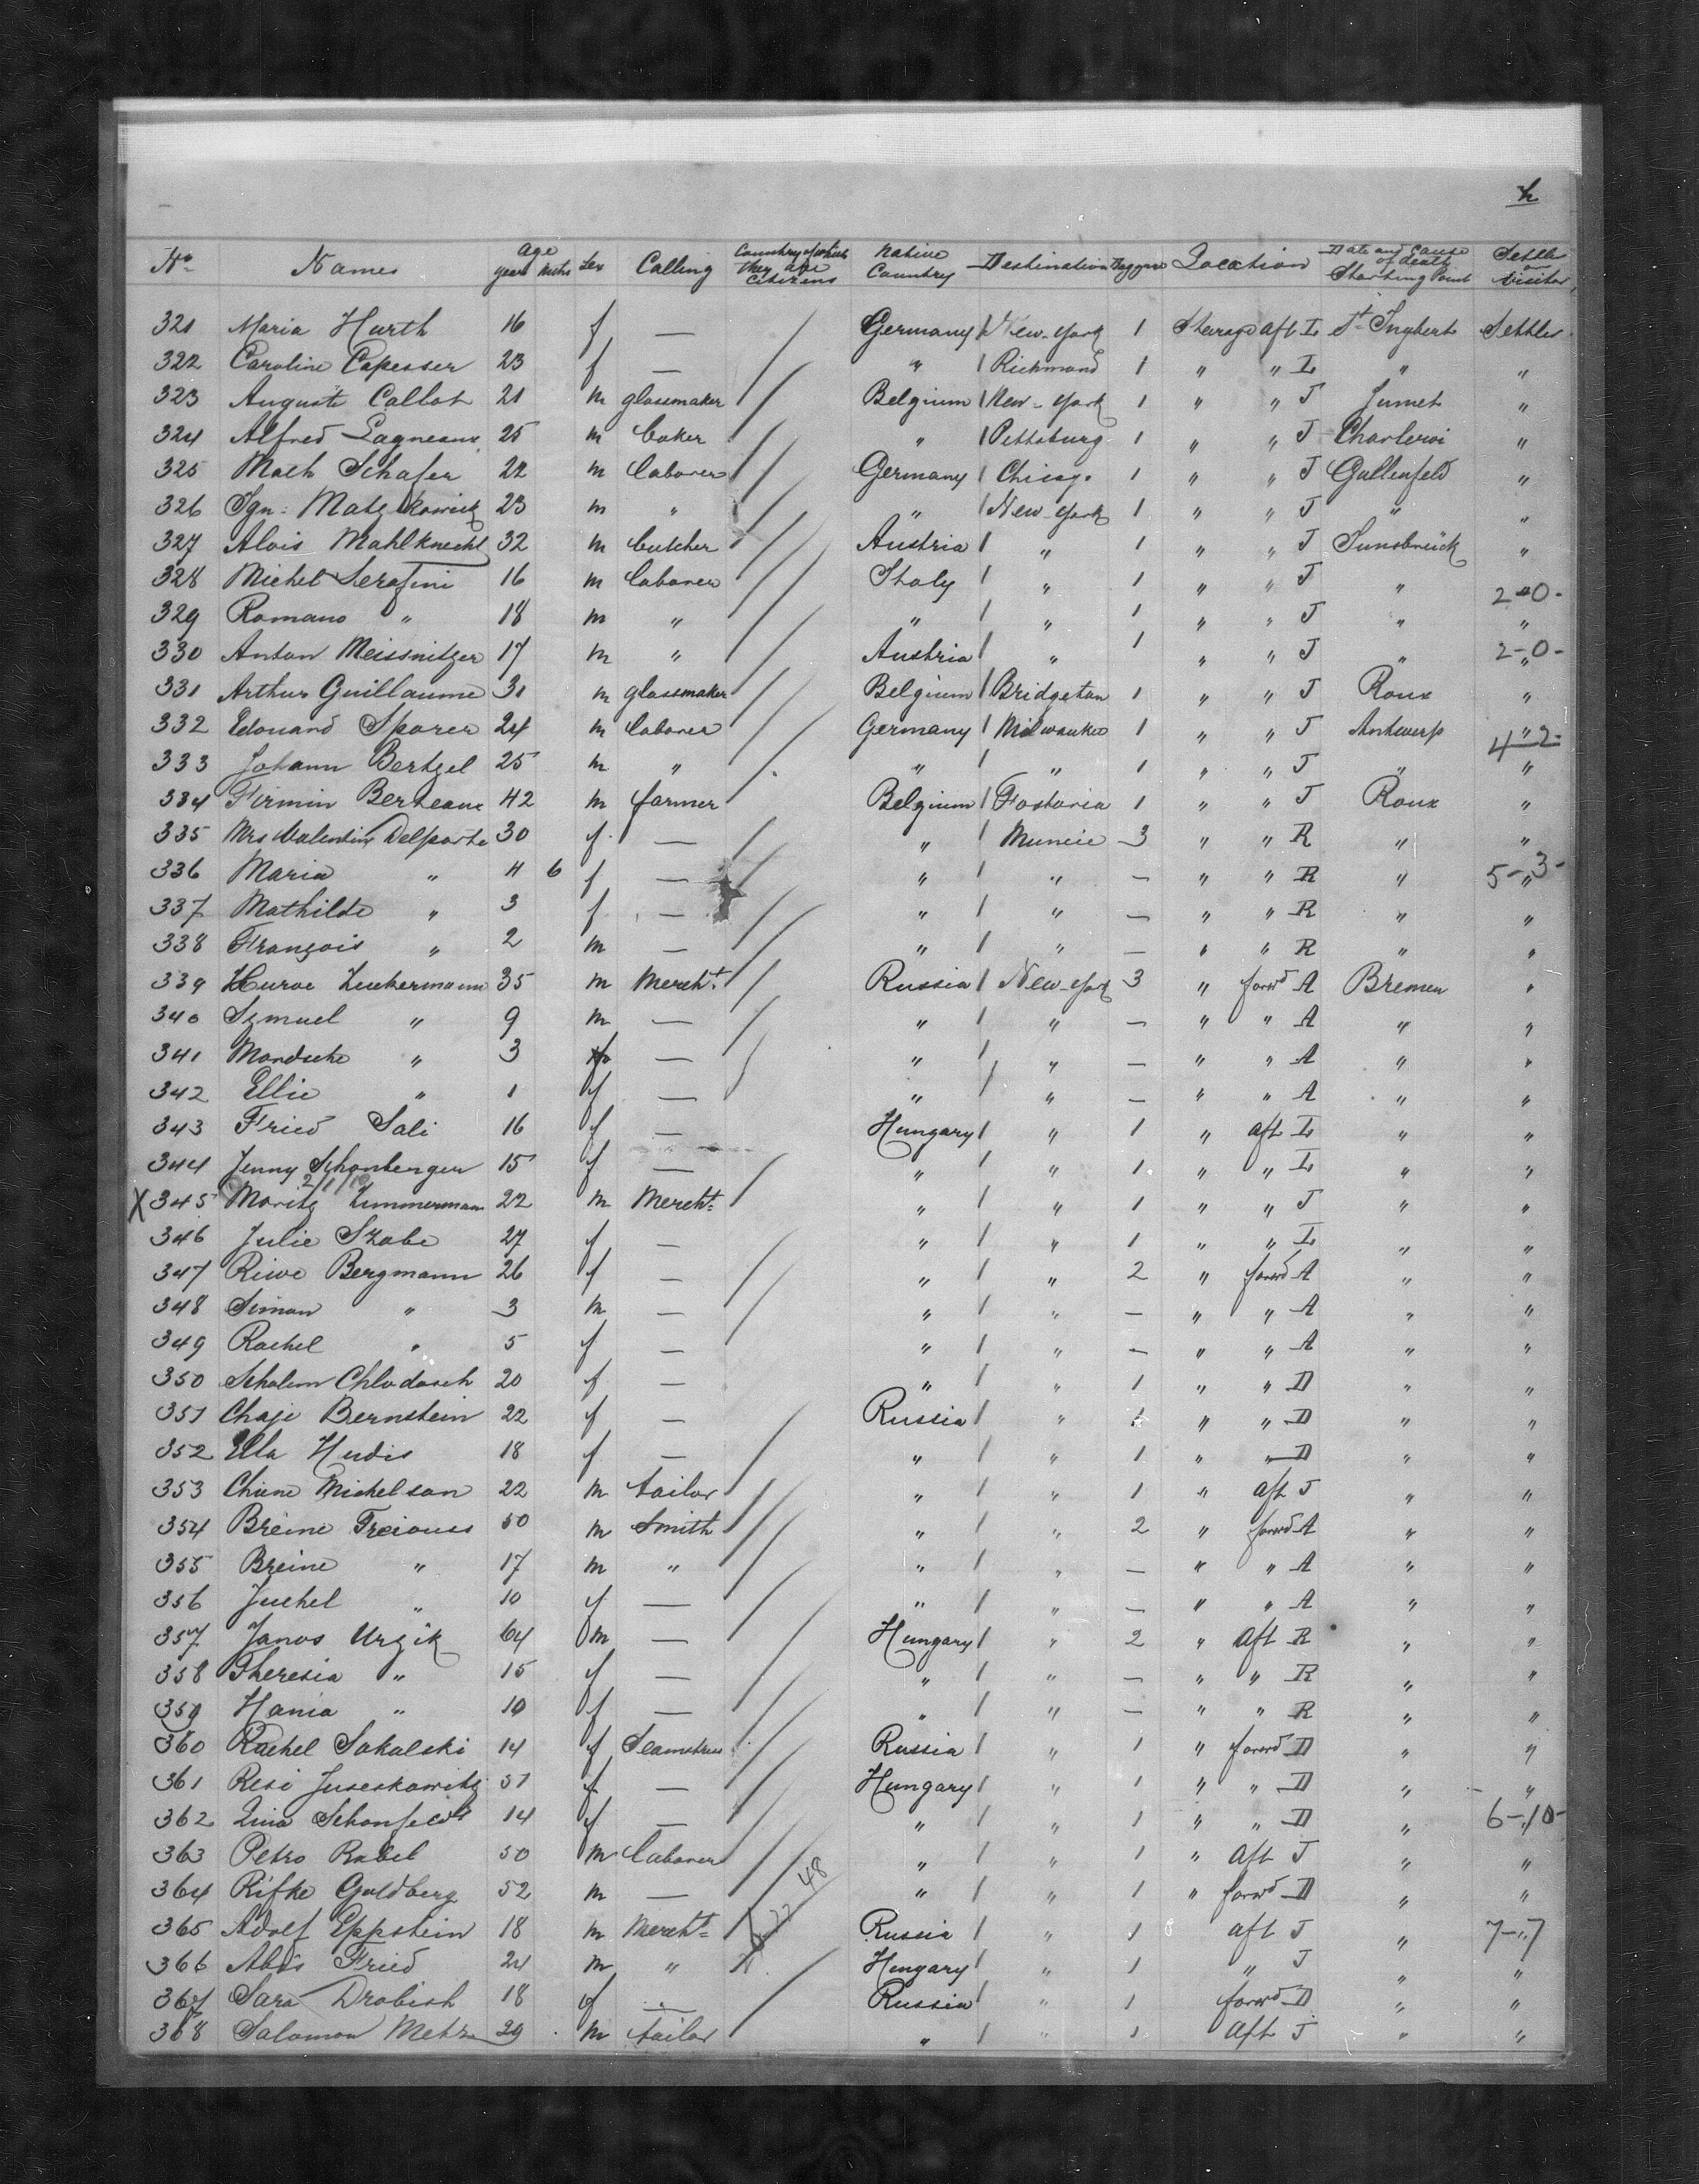 h
No. Names Age years mths Sex Calling Country of which they are Citizens Native Country Destination Baggage Location Date and Cause of death Starting Point Settler or visitor
321 Maria Hurth 16 f — Germany New-York 1 Sterage aft L St Ingbert Settler
322 Caroline Capesser 23 f — " Richmond 1 " " L " "
323 Auguste Callot 21 m glassmaker Belgium New-York 1 " " J Jumet "
324 Alfred Lagneaux 25 m baker " Pittsburg 1 " " J Charleroi "
325 Math Schafer 22 m laborer Germany Chicago 1 " " J Gallenfeld "
326 Ign: Matzkowick 23 m " " New-York 1 " " J " "
327 Alois Mahlknecht 32 m butcher Austria " 1 " " J Innsbrück "
328 Michel Serafini 16 m laborer Italy " 1 " " J " 2-0-
329 Romano " 18 m " " " 1 " " J " "
330 Anton Meissnitzer 17 m " Austria " 1 " " J " 2-0- "
331 Arthur Guillaume 31 m glassmaker Belgium Bridgeton 1 " " J Roux "
332 Edouard Sporer 24 m laborer Germany Milwaukee 1 " " J Antwerp " 4-2-
333 Johann Bertzel 25 m " " " 1 " " J " "
334 Firmin Berteaux 42 m farmer Belgium Fostoria 1 " " J Roux "
335 Mrs Valentine Delporte 30 f — " Muncie 3 " " R " "
336 Maria " 4 6 f — " " — " " R " 5-3- "
337 Mathilde " 3 f — " " — " " R " "
338 François " 2 m — " " — " " R " "
339 Zuckermann 35 m Mercht. Russia New-York 3 " forwd A Bremen "
340 Szmuel " 9 m — " " — " " A " "
341 Mordsche " 3 — " " — " " A " "
342 Ellie " 1 f — " " — " " A " "
343 Fried Sali 16 f — Hungary " 1 " aft L " "
344 Jenny Schonberger 15 f — " " 1 " " L " "
X 345 Moritz Zimmermann 22 m Mercht. " " 1 " " J " "
346 Julie Szabe 27 f — " " 1 " " L " "
347 Riwe Bergmann 26 f — " " 2 " forwd A " "
348 Simon " 3 m — " " — " " A " "
349 Rachel " 5 f — " " — " " A " "
350 Scholem Chlodasch 20 f — " " 1 " " D " "
351 Chaje Bernstein 22 f — Russia " 1 " " D " "
352 Ella Hudis 18 f — " " 1 " " D " "
353 Chiene Michelson 22 m tailor " " 1 " aft J " "
354 Breine Freiouss 50 m Smith " " 2 " forwd A " "
355 Breine " 17 m " " " — " " A " "
356 Juchel " 10 f — " " — " " A " "
357 Janos Urzik 64 m — Hungary " 2 " aft R " "
358 Theresia " 15 f — " " — " " R " "
359 Hania " 10 f — " " — " " R " "
360 Rachel Sokalski 14 f Seamstress Russia " 1 " forwd D " "
361 Resi Juseskowitz 51 f — Hungary " 1 " " D " "
362 Lina Schonfeld 14 f — " " 1 " " D " 6-10-
363 Petro Rabel 50 m laborer " " 1 " aft J " "
364 Rifke Goldberg 52 m — 48 " " 1 " forwd D " "
365 Adolf Eppstein 18 m Mercht. Russia " 1 aft J " 7-7
366 Abos Fried 24 m " Hungary " 1 " J " "
367 Sara Drobish 18 f — Russia " 1 forwd D " "
368 Salomon 29 m tailor " " 1 aft J " "